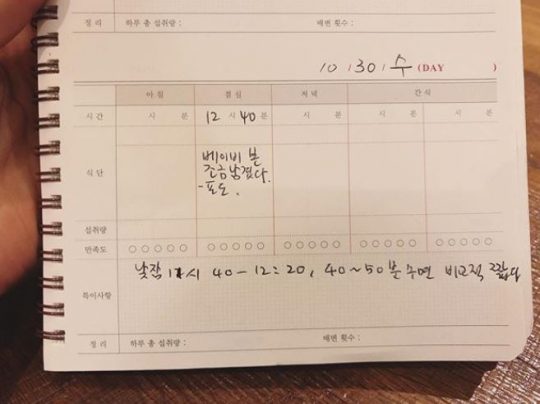 정 리 하루 총 섭취량 : 배변 횟수 :
10 / 30 / 수 (DAY )
아 침 점 심 저 녁 간 식
시 간 시 분 12 시 40 분 시 분 시 분 시 분
식 단 베이비 본
조금 남겼다.
-포도.
섭취량
만족도 ○○○○○ ○○○○○ ○○○○○ ○○○○○ ○○○○○
특이사항 낮잠 11시 40 - 12:20, 40~50분 수면 비교적 짧다
정 리 하루 총 섭취량 : 배변 횟수 :